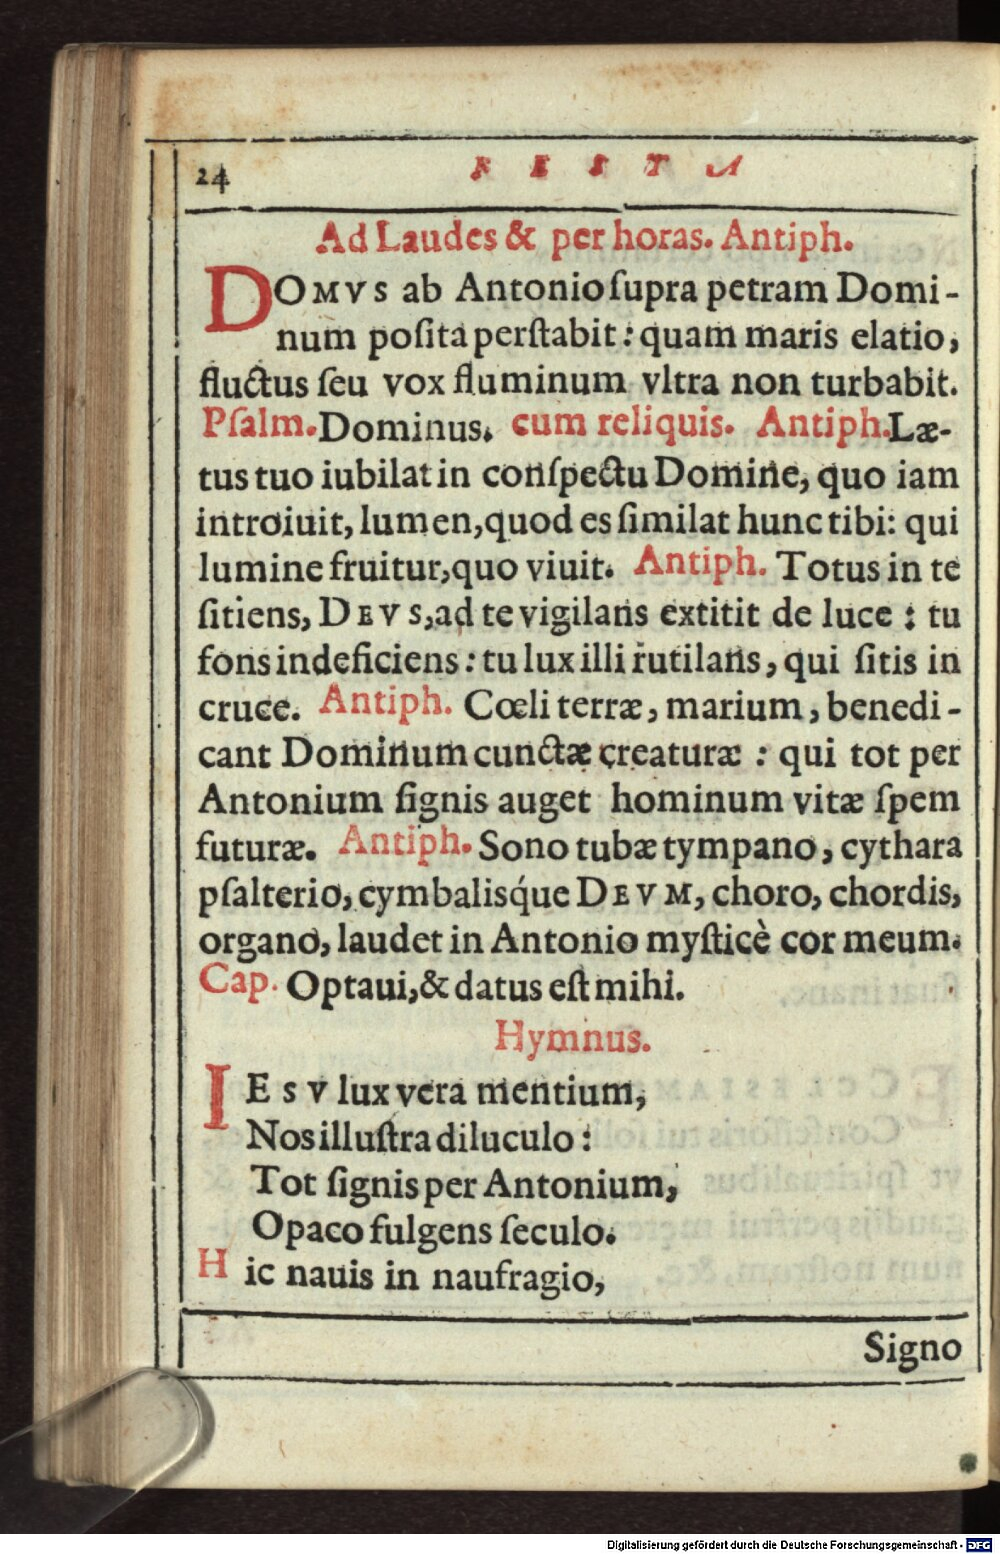 24 FESTA
Ad Laudes & per horas. Antiph.
DOMVS ab Antonio ſupra petram Domi-
num poſita perſtabit: quam maris elatio,
fluctus ſeu vox fluminum vltra non turbabit.
Pſalm. Dominus. cum reliquis. Antiph. Læ-
tus tuo iubilat in conſpectu Domine, quo iam
introiuit, lumen, quod es ſimilat hunc tibi: qui
lumine fruitur, quo viuit. Antiph. Totus in te
ſitiens, DEVS, ad te vigilans extitit de luce: tu
fons indeficiens: tu lux illi rutilans, qui ſitis in
cruce. Antiph. Cœli terræ, marium, benedi-
cant Dominum cunctæ creaturæ: qui tot per
Antonium ſignis auget hominum vitæ ſpem
futuræ. Antiph. Sono tubæ tympano, cythara
pſalterio, cymbaliſq́ue DEVM, choro, chordis,
organo, laudet in Antonio myſticè cor meum.
Cap. Optaui, & datus eſt mihi.
Hymnus.
IESV lux vera mentium,
Nos illuſtra diluculo:
Tot ſignis per Antonium,
Opaco fulgens ſeculo.
Hic nauis in naufragio,
Signo
Digitalisierung gefördert durch die Deutsche Forschungsgemeinschaft - DFG